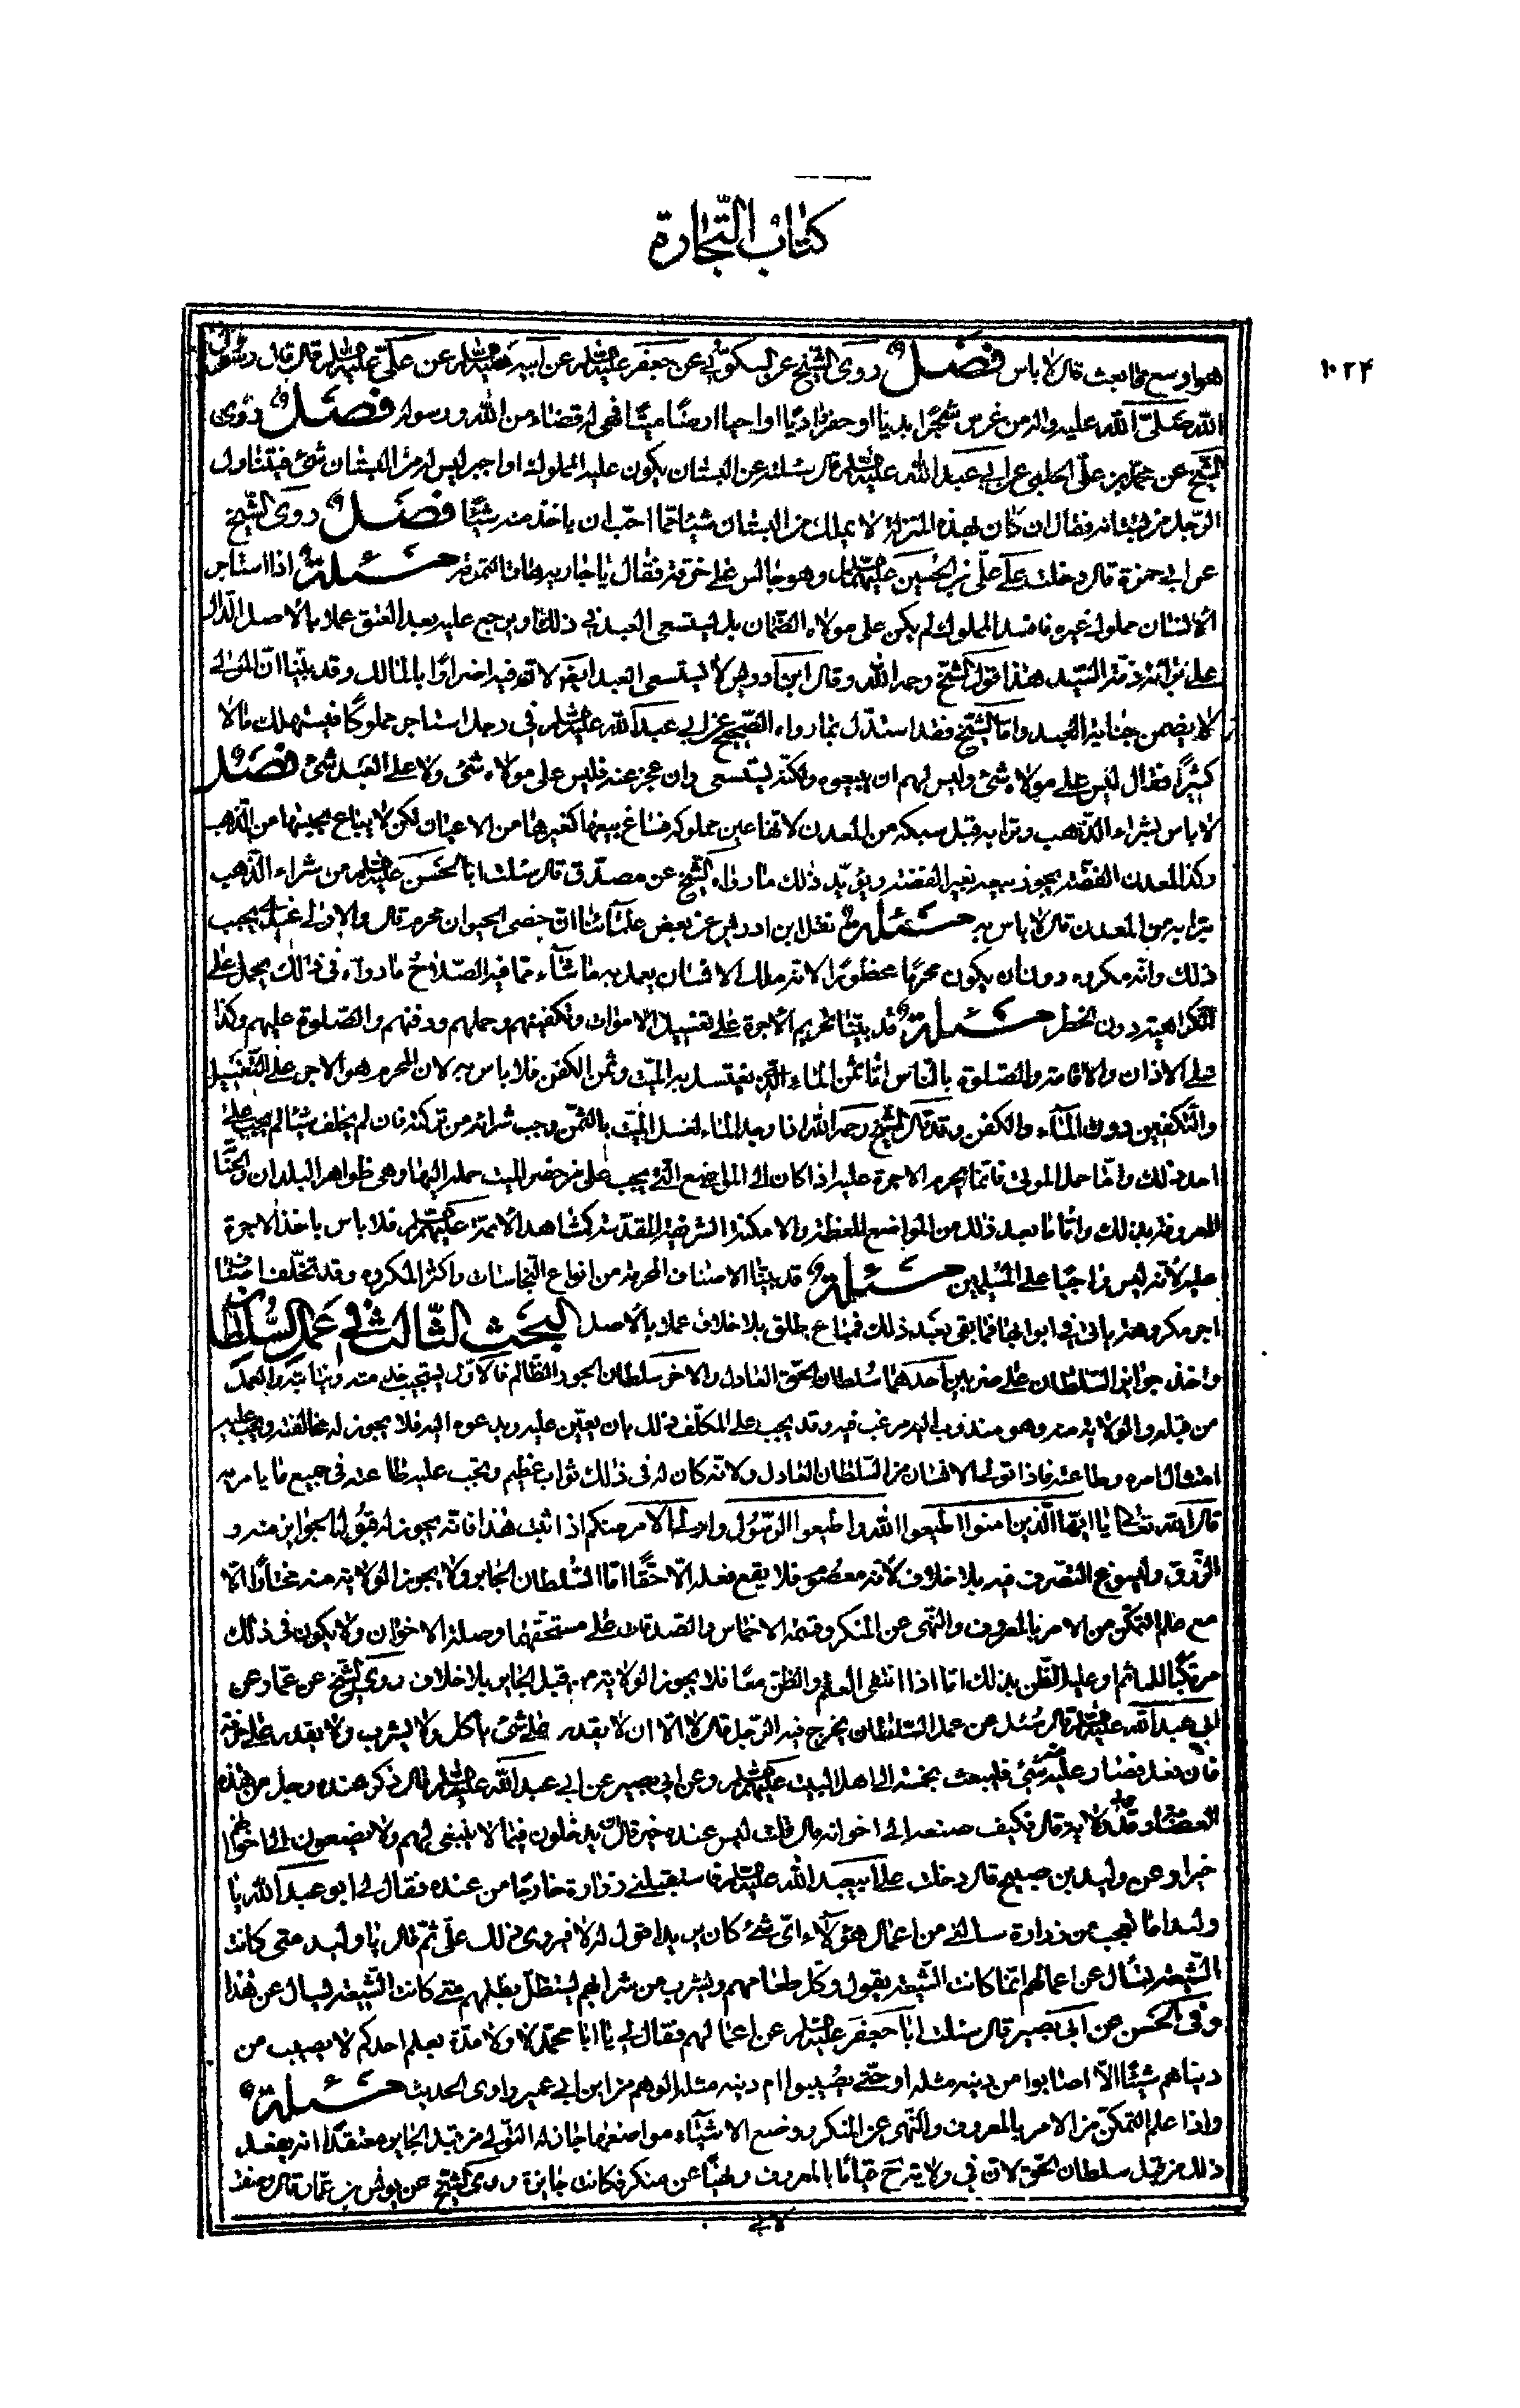 كتاب التجارة
١٠٢۴
هو اوسع مما بعث قال لا باس فصل روى الشيخ عن السكوني عن جعفر عليه السلام عن ابيه عليه السلام عن علي عليه السلام قال قال رسول
الله صلى الله عليه واله من غرس شجرا بديا او حفر واديا او احيا ارضا ميتا فهي له قضاء من الله ورسوله فصل روى
الشيخ عن محمد بن علي الحلبي عن ابي عبد الله عليه السلام قال سئلته عن البستان يكون عليه المملوك او اجير ليس له من البستان شئ فيتناول
الرجل من بستانه فقال ان كان بهذه المنزلة لا يملك من البستان شيئا فما احب ان ياخذ منه شيئا فصل روى الشيخ
عن ابي حمزة قال دخلت على علي بن الحسين عليهما السلام وهو جالس على نمرقة فقال يا جارية هاتي النمرقة مسئلة اذا استاجر
الانسان مملوك غيره فافسد المملوك لم يكن على مولاه الضمان بل يستسعى العبد في ذلك ويرجع عليه بعد العتق عملا بالاصل الدال
على برائة ذمة السيد هذا قول الشيخ رحمه الله وقال ابن ادريس لا يستسعى العبد لانه فيه اضرارا بالمالك وقد بينا ان المولى
لا يضمن جناية العبد واما الشيخ فقد استدل بما رواه الصحيح عن ابي عبد الله عليه السلام في رجل استاجر مملوكا فيستهلك مالا
كثيرا فقال ليس على مولاه شئ وليس لهم ان يبيعوه ولكنه يستسعى وان عجز عنه فليس على مولاه شئ ولا على العبد شئ فصل
لا باس بشراء الذهب وترابه قبل سبكه من المعدن لانها عين مملوكه فساغ بيعها كغيرها من الاعيان لكن لا يباع بجنسها من الذهب
وكذا المعدن الفضة يجوز بيعه بغير الفضة ويؤيد ذلك ما رواه الشيخ عن مصدق قال سئلت ابا الحسن عليه السلام من شراء الذهب
بترابه من المعدن قال لا باس به مسئلة نقل ابن ادريس عن بعض علمائنا ان خصي الحيوان محرم قال والاولى عندي تجنب
ذلك وانه مكروه دون ان يكون محرما محظورا لانه ملك الانسان يعمل به ما شاء مما فيه الصلاح وما رواه في ذلك يحمل على
الكراهية دون الحظر مسئلة قد بينا تحريم الاجرة على تغسيل الاموات وتكفينهم وحملهم ودفنهم والصلوة عليهم وكذا
على الاذان والاقامة والصلوة بالناس اما ثمن الماء الذي يغتسل به الميت وثمن الكفن فلا باس به لان المحرم هو الاجر على التغسيل
والتكفين دون الماء والكفن وقد قال الشيخ رحمه الله اذا وجد الماء لغسل الميت بالثمن وجب شرائه من تركته فان لم يخلف شيئا لم يجب على
احد ذلك واما حمل الموتى فانما يحرم الاجرة عليه اذا كان الى المواضع التي يجب على من حضر الميت حمله اليها وهي ظواهر البلدان والجبانة
المعروفة بذلك واما ما بعد ذلك من المواضع المعظمة والامكنة الشريفة المقدسة كمشاهد الائمة عليهم السلام فلا باس باخذ الاجرة
عليه لانه ليس واجبا على المسلمين مسئلة قد بينا الاصناف المحرمة من انواع النجاسات واكثر المكروه وقد تخلف اشيا
اخر مكروهة ياتي في ابوابها فما بقي بعد ذلك فمباح طلق بلا خلاف عملا بالاصل البحث الثالث في عمل السلطان
واخذ جوائز السلطان على ضربين احدهما سلطان الحق العادل والاخر سلطان الجور الظالم فالاول يستحب خدمته ونيابته والعمل
من قبله والولاية منه وهو مندوب اليه مرغب فيه وقد يجب على المكلف ذلك بان يعين عليه ويدعوه اليه فلا يجوز له مخالفته ويجب عليه
امتثال امره وطاعته فاذا تولى الانسان من السلطان العادل ولاية كان له في ذلك ثواب عظيم ويجب عليه طاعته في جميع ما يامر به
قال الله تعالى يا ايها الذين امنوا اطيعوا الله واطيعوا الرسول واولي الامر منكم اذا ثبت هذا فانه يجوز له قبول الجوائز منه و
الرزق ويسوغ التصرف فيه بلا خلاف لانه معصوم فلا يقع فعله الا حقا اما السلطان الجاير ولا يجوز الولاية منه مختارا الا
مع علم التمكن من الامر بالمعروف والنهى عن المنكر وقسمة الاخماس والصدقات على مستحقها وصلة الاخوان ولا يكون في ذلك
مرتكبا للماثم او غلبة الظن بذلك اما اذا انتفى العلم والظن معا فلا يجوز الولاية من قبل الجاير بلا خلاف روى الشيخ عن عمار عن
ابي عبد الله عليه السلام قال سئل عن عمل السلطان يخرج فيه الرجل قال لا الا ان لا يقدر على شئ ياكل ولا يشرب ولا يقدر على حيلة
فان فعل فصار في يده شئ فليبعث بخمسه الى اهل البيت عليهم السلام وعن ابي بصير عن ابي عبد الله عليه السلام قال ذكر عنده رجل من هذه
العصابة قد ولي ولاية قال فكيف صنعه الى اخوانه قال قلت ليس عنده خير قال اف يدخلون فيما لا ينبغي لهم ولا يصنعون الى اخوانهم
خيرا وعن وليد بن صبيح قال دخلت على ابي عبد الله عليه السلام فاستقبلني زرارة خارجا من عنده فقال لي ابو عبد الله يا
وليد اما تعجب من زرارة سالني من اعمال هؤلاء اي شئ كان يريد اقول له لا فيروى ذلك علي ثم قال يا وليد متى كانت
الشيعة تسال عن اعمالهم انما كانت الشيعة يقول وكل طعامهم ويشرب من شرابهم يستظل بظلهم متى كانت الشيعة تسال عن هذا
وفي الحسن عن ابي بصير قال سئلت ابا جعفر عليه السلام عن اعمالهم فقال لي يا ابا محمد لا ولا مدة بقلم احدكم لا يصيب من
دنياهم شيئا الا اصابوا من دينه مثله او حتى يصيبوا من دينه مثله الوهم من ابن ابي عمير راوى الحديث مسئلة
واذا علم التمكن من الامر بالمعروف والنهى عن المنكر ووضع الاشياء مواضعها جاز له التولى من قبل الجاير معتقدا انه يفعل
ذلك من قبل سلطان الحق لان في ولايته ح قياما بالمعروف ونهيا عن منكر فكانت جايزة روى الشيخ عن يونس بن عمار قال وصفت
لابي